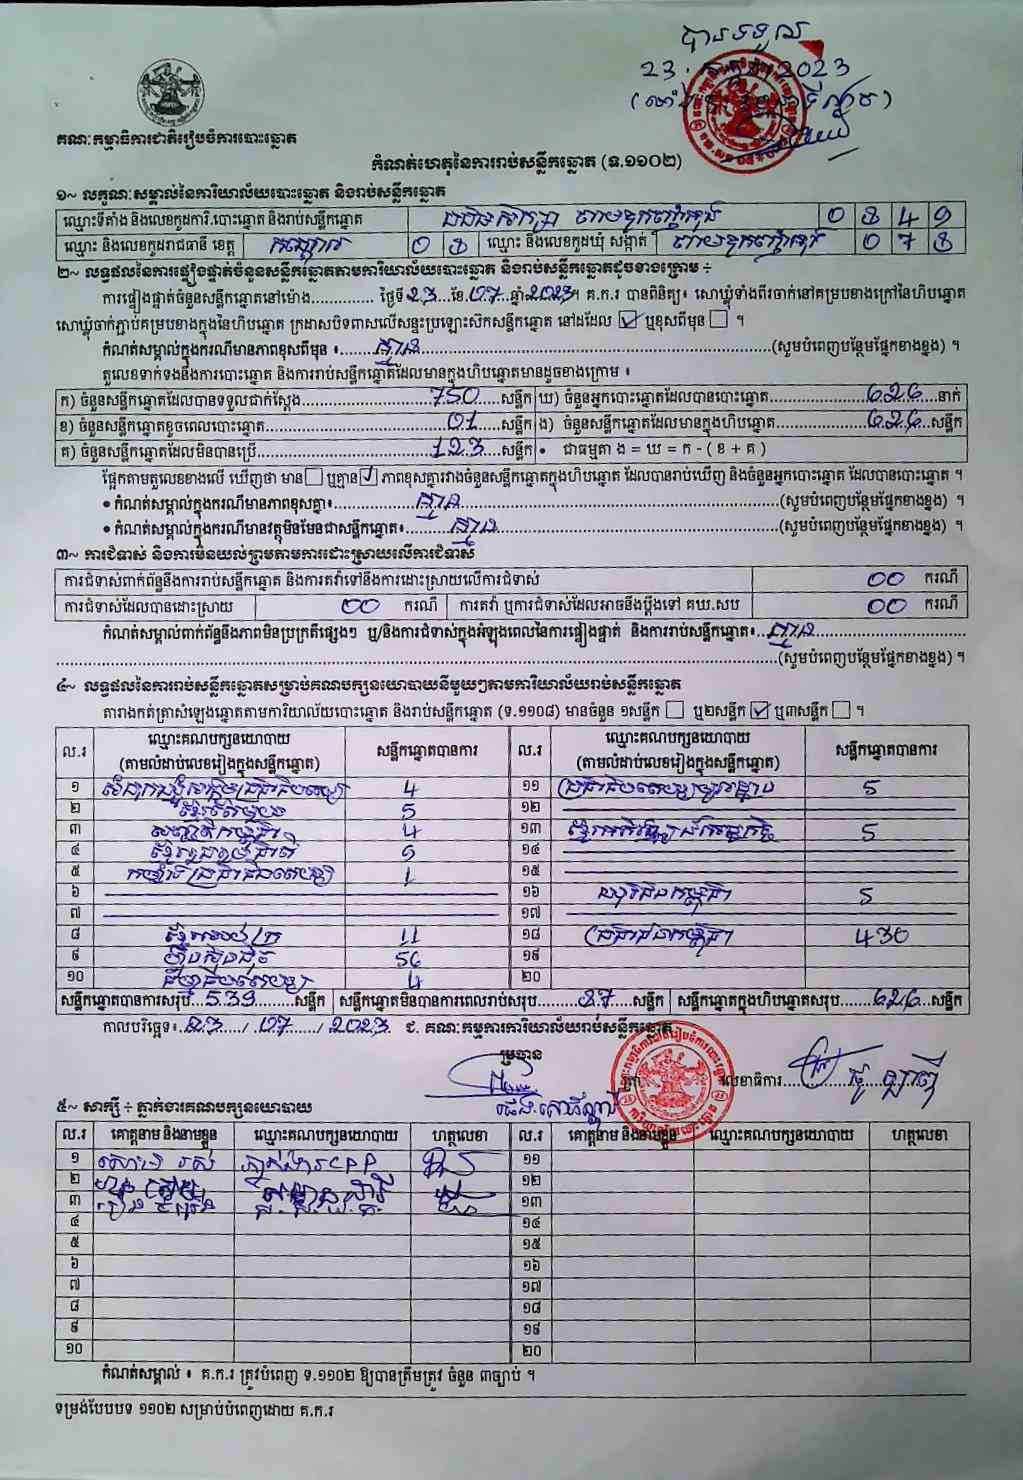 បានទទួល
23 2023
គណៈកម្មាធិការជាតិរៀបចំការបោះឆ្នោត
កំណត់ហេតុនៃការរាប់សន្លឹកឆ្នោត (ទ.១១០២)
១~ លក្ខណៈសម្គាល់នៃការិយាល័យបោះឆ្នោត និងរាប់សន្លឹកឆ្នោត
ឈ្មោះទីតាំង និងលេខកូដការិ.បោះឆ្នោត និងរាប់សន្លឹកឆ្នោត
ឈ្មោះ និងលេខកូដរាជធានី ខេត្ត កណ្តាល 0 8 ឈ្មោះ និងលេខកូដឃុំ សង្កាត់
២~ លទ្ធផលនៃការផ្ទៀងផ្ទាត់ចំនួនសន្លឹកឆ្នោតតាមការិយាល័យបោះឆ្នោត និងរាប់សន្លឹកឆ្នោតដូចខាងក្រោម ÷
ការផ្ទៀងផ្ទាត់ចំនួនសន្លឹកឆ្នោតនៅម៉ោង.............. ថ្ងៃទី 23 ខែ 07 ឆ្នាំ 2023។ គ.ក.រ បានពិនិត្យ៖ សោឃ្លុំទាំងពីរចាក់នៅគម្របខាងក្រៅនៃហិបឆ្នោត
សោឃ្លុំចាក់ភ្ជាប់គម្របខាងក្នុងនៃហិបឆ្នោត ក្រដាសបិទពាសលើសន្ទះប្រឡោះសិកសន្លឹកឆ្នោត នៅដដែល ☑ ឬខុសពីមុន ☐ ។
កំណត់សម្គាល់ក្នុងករណីមានភាពខុសពីមុន ៖ គ្មាន (សូមបំពេញបន្ថែមផ្នែកខាងខ្នង) ។
តួលេខទាក់ទងនឹងការបោះឆ្នោត និងការរាប់សន្លឹកឆ្នោតដែលមានក្នុងហិបឆ្នោតមានដូចខាងក្រោម ៖
ក) ចំនួនសន្លឹកឆ្នោតដែលបានទទួលជាក់ស្តែង 750 សន្លឹក ឃ) ចំនួនអ្នកបោះឆ្នោតដែលបានបោះឆ្នោត 626 នាក់
ខ) ចំនួនសន្លឹកឆ្នោតខូចពេលបោះឆ្នោត 01 សន្លឹក ង) ចំនួនសន្លឹកឆ្នោតដែលមានក្នុងហិបឆ្នោត 626 សន្លឹក
គ) ចំនួនសន្លឹកឆ្នោតដែលមិនបានប្រើ 123 សន្លឹក • ជាធម្មតា ង = ឃ = ក - ( ខ + គ )
ផ្អែកតាមតួលេខខាងលើ ឃើញថា មាន ☐ ឬគ្មាន ☑ ភាពខុសគ្នារវាងចំនួនសន្លឹកឆ្នោតក្នុងហិបឆ្នោត ដែលបានរាប់ឃើញ និងចំនួនអ្នកបោះឆ្នោត ដែលបានបោះឆ្នោត ។
• កំណត់សម្គាល់ក្នុងករណីមានភាពខុសគ្នា៖ គ្មាន (សូមបំពេញបន្ថែមផ្នែកខាងខ្នង) ។
• កំណត់សម្គាល់ក្នុងករណីមានវត្ថុមិនមែនជាសន្លឹកឆ្នោត៖ គ្មាន (សូមបំពេញបន្ថែមផ្នែកខាងខ្នង) ។
៣~ ការជំទាស់ និងការមិនយល់ព្រមតាមការដោះស្រាយលើការជំទាស់
ការជំទាស់ពាក់ព័ន្ធនឹងការរាប់សន្លឹកឆ្នោត និងការតវ៉ាទៅនឹងការដោះស្រាយលើការជំទាស់ 00 ករណី
ការជំទាស់ដែលបានដោះស្រាយ 00 ករណី ការតវ៉ា ឬការជំទាស់ដែលអាចនឹងប្តឹងទៅ គឃ.សប 00 ករណី
កំណត់សម្គាល់ពាក់ព័ន្ធនឹងភាពមិនប្រក្រតីផ្សេងៗ ឬ/និងការជំទាស់ក្នុងអំឡុងពេលនៃការផ្ទៀងផ្ទាត់ និងការរាប់សន្លឹកឆ្នោត៖ គ្មាន
(សូមបំពេញបន្ថែមផ្នែកខាងខ្នង) ។
៤~ លទ្ធផលនៃការរាប់សន្លឹកឆ្នោតសម្រាប់គណបក្សនយោបាយនីមួយៗតាមការិយាល័យរាប់សន្លឹកឆ្នោត
តារាងកត់ត្រាសំឡេងឆ្នោតតាមការិយាល័យបោះឆ្នោត និងរាប់សន្លឹកឆ្នោត (ទ.១១០៨) មានចំនួន ១សន្លឹក ☐ ឬ២សន្លឹក ☑ ឬ៣សន្លឹក ☐ ។
ល.រ ឈ្មោះគណបក្សនយោបាយ (តាមលំដាប់លេខរៀងក្នុងសន្លឹកឆ្នោត) សន្លឹកឆ្នោតបានការ ល.រ ឈ្មោះគណបក្សនយោបាយ (តាមលំដាប់លេខរៀងក្នុងសន្លឹកឆ្នោត) សន្លឹកឆ្នោតបានការ
១ 4 ១១ 5
២ ខ្មែររួបរួម 5 ១២
៣ សញ្ជាតិកម្ពុជា 4 ១៣ ខ្មែរអភិវឌ្ឍន៍សេដ្ឋកិច្ច 5
៤ 9 ១៤
៥ 1 ១៥
៦ ១៦ យុវជនកម្ពុជា 5
៧ ១៧
៨ 11 ១៨ ប្រជាជនកម្ពុជា 430
៩ ហ្វ៊ុនស៊ិនប៉ិច 56 ១៩
១០ 4 ២០
សន្លឹកឆ្នោតបានការសរុប 539 សន្លឹក សន្លឹកឆ្នោតមិនបានការពេលរាប់សរុប 87 សន្លឹក សន្លឹកឆ្នោតក្នុងហិបឆ្នោតសរុប 626 សន្លឹក
កាលបរិច្ឆេទ៖ 23 / 07 / 2023 ជ. គណៈកម្មការការិយាល័យរាប់សន្លឹកឆ្នោត
ប្រធាន
លេខាធិការ
៥~ សាក្សី ÷ ភ្នាក់ងារគណបក្សនយោបាយ
ល.រ គោត្តនាម និងនាមខ្លួន ឈ្មោះគណបក្សនយោបាយ ហត្ថលេខា ល.រ គោត្តនាម និងនាមខ្លួន ឈ្មោះគណបក្សនយោបាយ ហត្ថលេខា
១ ភ្នាក់ងារ CPP ១១
២ ១២
៣ ១៣
៤ ១៤
៥ ១៥
៦ ១៦
៧ ១៧
៨ ១៨
៩ ១៩
១០ ២០
កំណត់សម្គាល់ ៖ គ.ក.រ ត្រូវបំពេញ ទ.១១០២ ឱ្យបានត្រឹមត្រូវ ចំនួន ៣ច្បាប់ ។
ទម្រង់បែបបទ ១១០២ សម្រាប់បំពេញដោយ គ.ក.រ